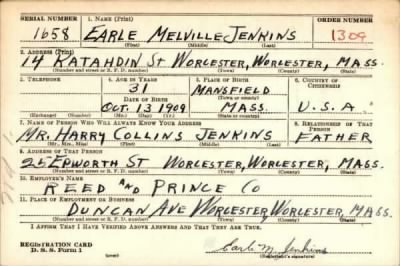 SERIAL NUMBER 1. NAME (Print) ORDER NUMBER
1658 EARLE MELVILLE JENKINS 1309
(First) (Middle) (Last)
2. ADDRESS (Print)
14 KATAHDIN ST WORCESTER, WORCESTER, MASS.
(Number and street or R. F. D. number) (Town) (County) (State)
3. TELEPHONE 4. AGE IN YEARS 5. PLACE OF BIRTH 6. COUNTRY OF CITIZENSHIP
31 MANSFIELD
DATE OF BIRTH (Town or county)
OCT. 13 1909 MASS. U.S.A.
(Exchange) (Number) (Mo.) (Day) (Yr.) (State or country)
7. NAME OF PERSON WHO WILL ALWAYS KNOW YOUR ADDRESS 8. RELATIONSHIP OF THAT PERSON
MR. HARRY COLLINS JENKINS FATHER
(Mr., Mrs., Miss) (First) (Middle) (Last)
9. ADDRESS OF THAT PERSON
25 EPWORTH ST WORCESTER, WORCESTER, MASS.
(Number and street or R. F. D. number) (Town) (County) (State)
10. EMPLOYER'S NAME
REED AND PRINCE CO
11. PLACE OF EMPLOYMENT OR BUSINESS
DUNCAN AVE WORCESTER, WORCESTER, MASS.
(Number and street or R. F. D. number) (Town) (County) (State)
I AFFIRM THAT I HAVE VERIFIED ABOVE ANSWERS AND THAT THEY ARE TRUE.
REGISTRATION CARD
D. S. S. Form 1 Earle M. Jenkins
(over) (Registrant's signature)